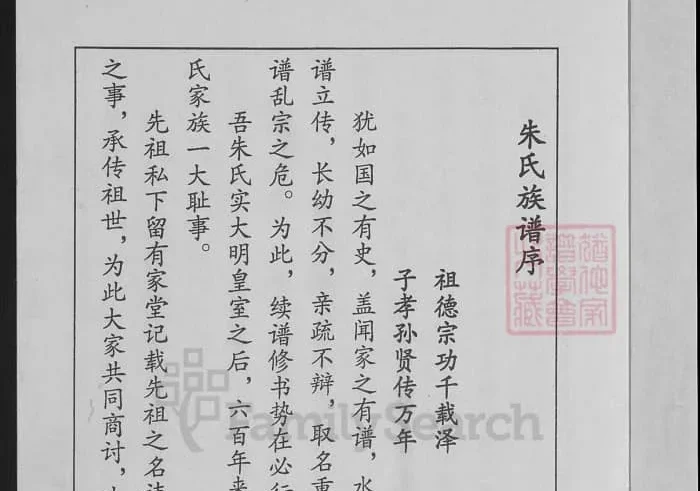 朱氏族谱序
祖德宗功千载泽
子孝孙贤传万年
犹如国之有史，盖闻家之有谱，水
谱立传，长幼不分，亲疏不辩，取名重
谱乱宗之危。为此，续谱修书势在必行
吾朱氏实大明皇室之后，六百年来
氏家族一大耻事。
先祖私下留有家堂记载先祖之名讳
之事，承传祖世，为此大家共同商讨，
FamilySearch